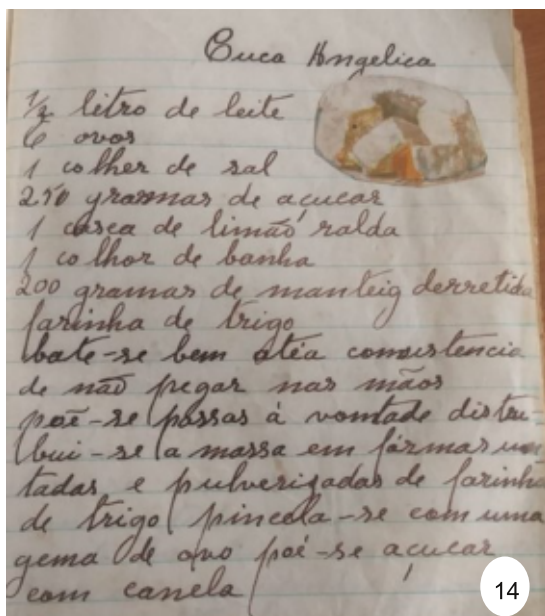 Cuca Angelica
1/2 litro de leite
6 ovos
1 colher de sal
250 gramas de açucar
1 casca de limão ralda
1 colhor de banha
200 gramas de manteig derretida
farinha de trigo
bate-se bem atéa consistencia
de não pegar nas mãos
poē-se passas á vontade distri-
bui-se a massa em fôrmas un-
tadas e pulverigadas de farinha
de trigo pincela-se com uma
gema de ovo poé-se açucar
com canela
14